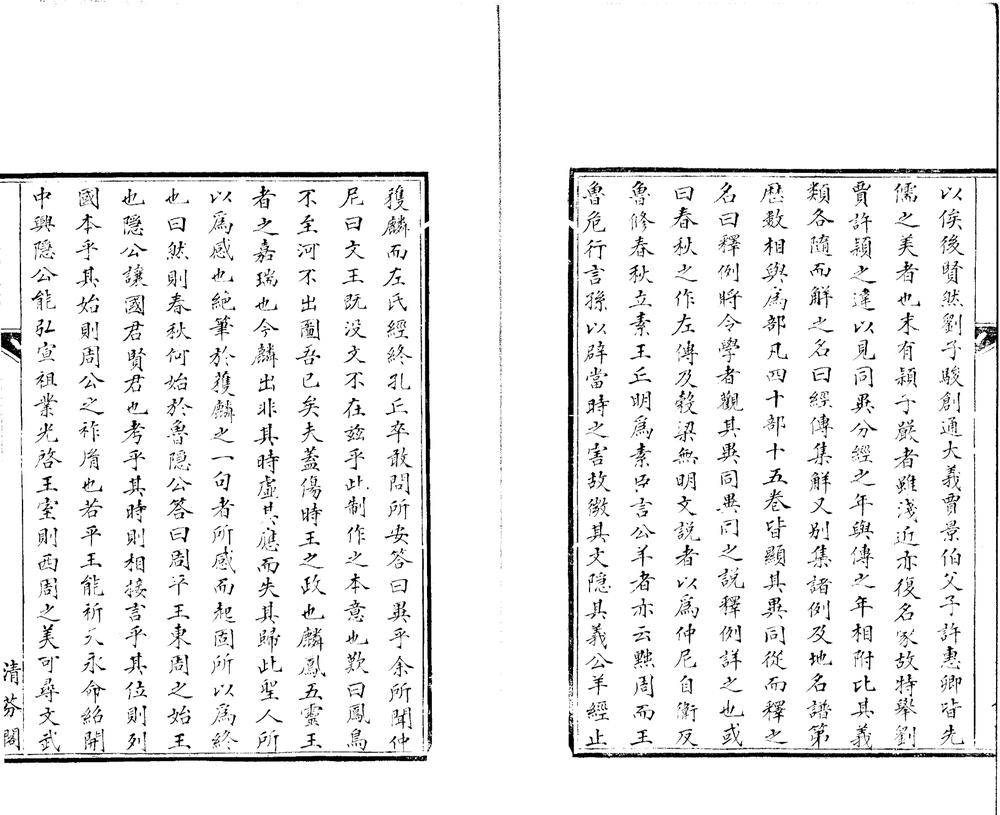 以俟後賢然劉子駿創通大義賈景伯父子許惠卿皆先
儒之美者也末有潁子嚴者雖淺近亦復名家故特舉劉
賈許潁之違以見同異分經之年與傳之年相附比其義
類各隨而解之名曰經傳集解又別集諸例及地名譜第
歷數相與爲部凡四十部十五卷皆顯其異同從而釋之
名曰釋例將令學者觀其異同異同之說釋例詳之也或
曰春秋之作左傳及穀梁無明文說者以爲仲尼自衛反
魯修春秋立素王丘明爲素臣言公羊者亦云黜周而王
魯危行言孫以辟當時之害故微其文隱其義公羊經止
獲麟而左氏經終孔丘卒敢問所安答曰異乎余所聞仲
尼曰文王既沒文不在兹乎此制作之本意也歎曰鳳鳥
不至河不出圖吾已矣夫蓋傷時王之政也麟鳳五靈王
者之嘉瑞也今麟出非其時虛其應而失其歸此聖人所
以爲感也絕筆於獲麟之一句者所感而起固所以爲終
也曰然則春秋何始於魯隱公答曰周平王東周之始王
也隱公讓國君賢君也考乎其時則相接言乎其位則列
國本乎其始則周公之祚胤也若平王能祈天永命紹開
中興隱公能弘宣祖業光啓王室則西周之美可尋文武
清芬閣